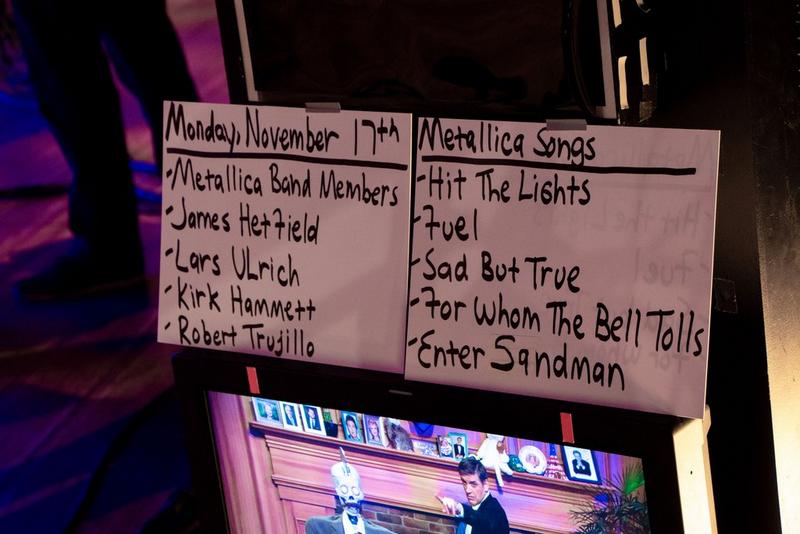 Monday, November 17th
-Metallica Band Members
-James Hetfield
-Lars ULrich
-Kirk Hammett
-Robert Trujillo
Metallica Songs
-Hit The Lights
-Fuel
-Sad But True
-For Whom The Bell Tolls
-Enter Sandman